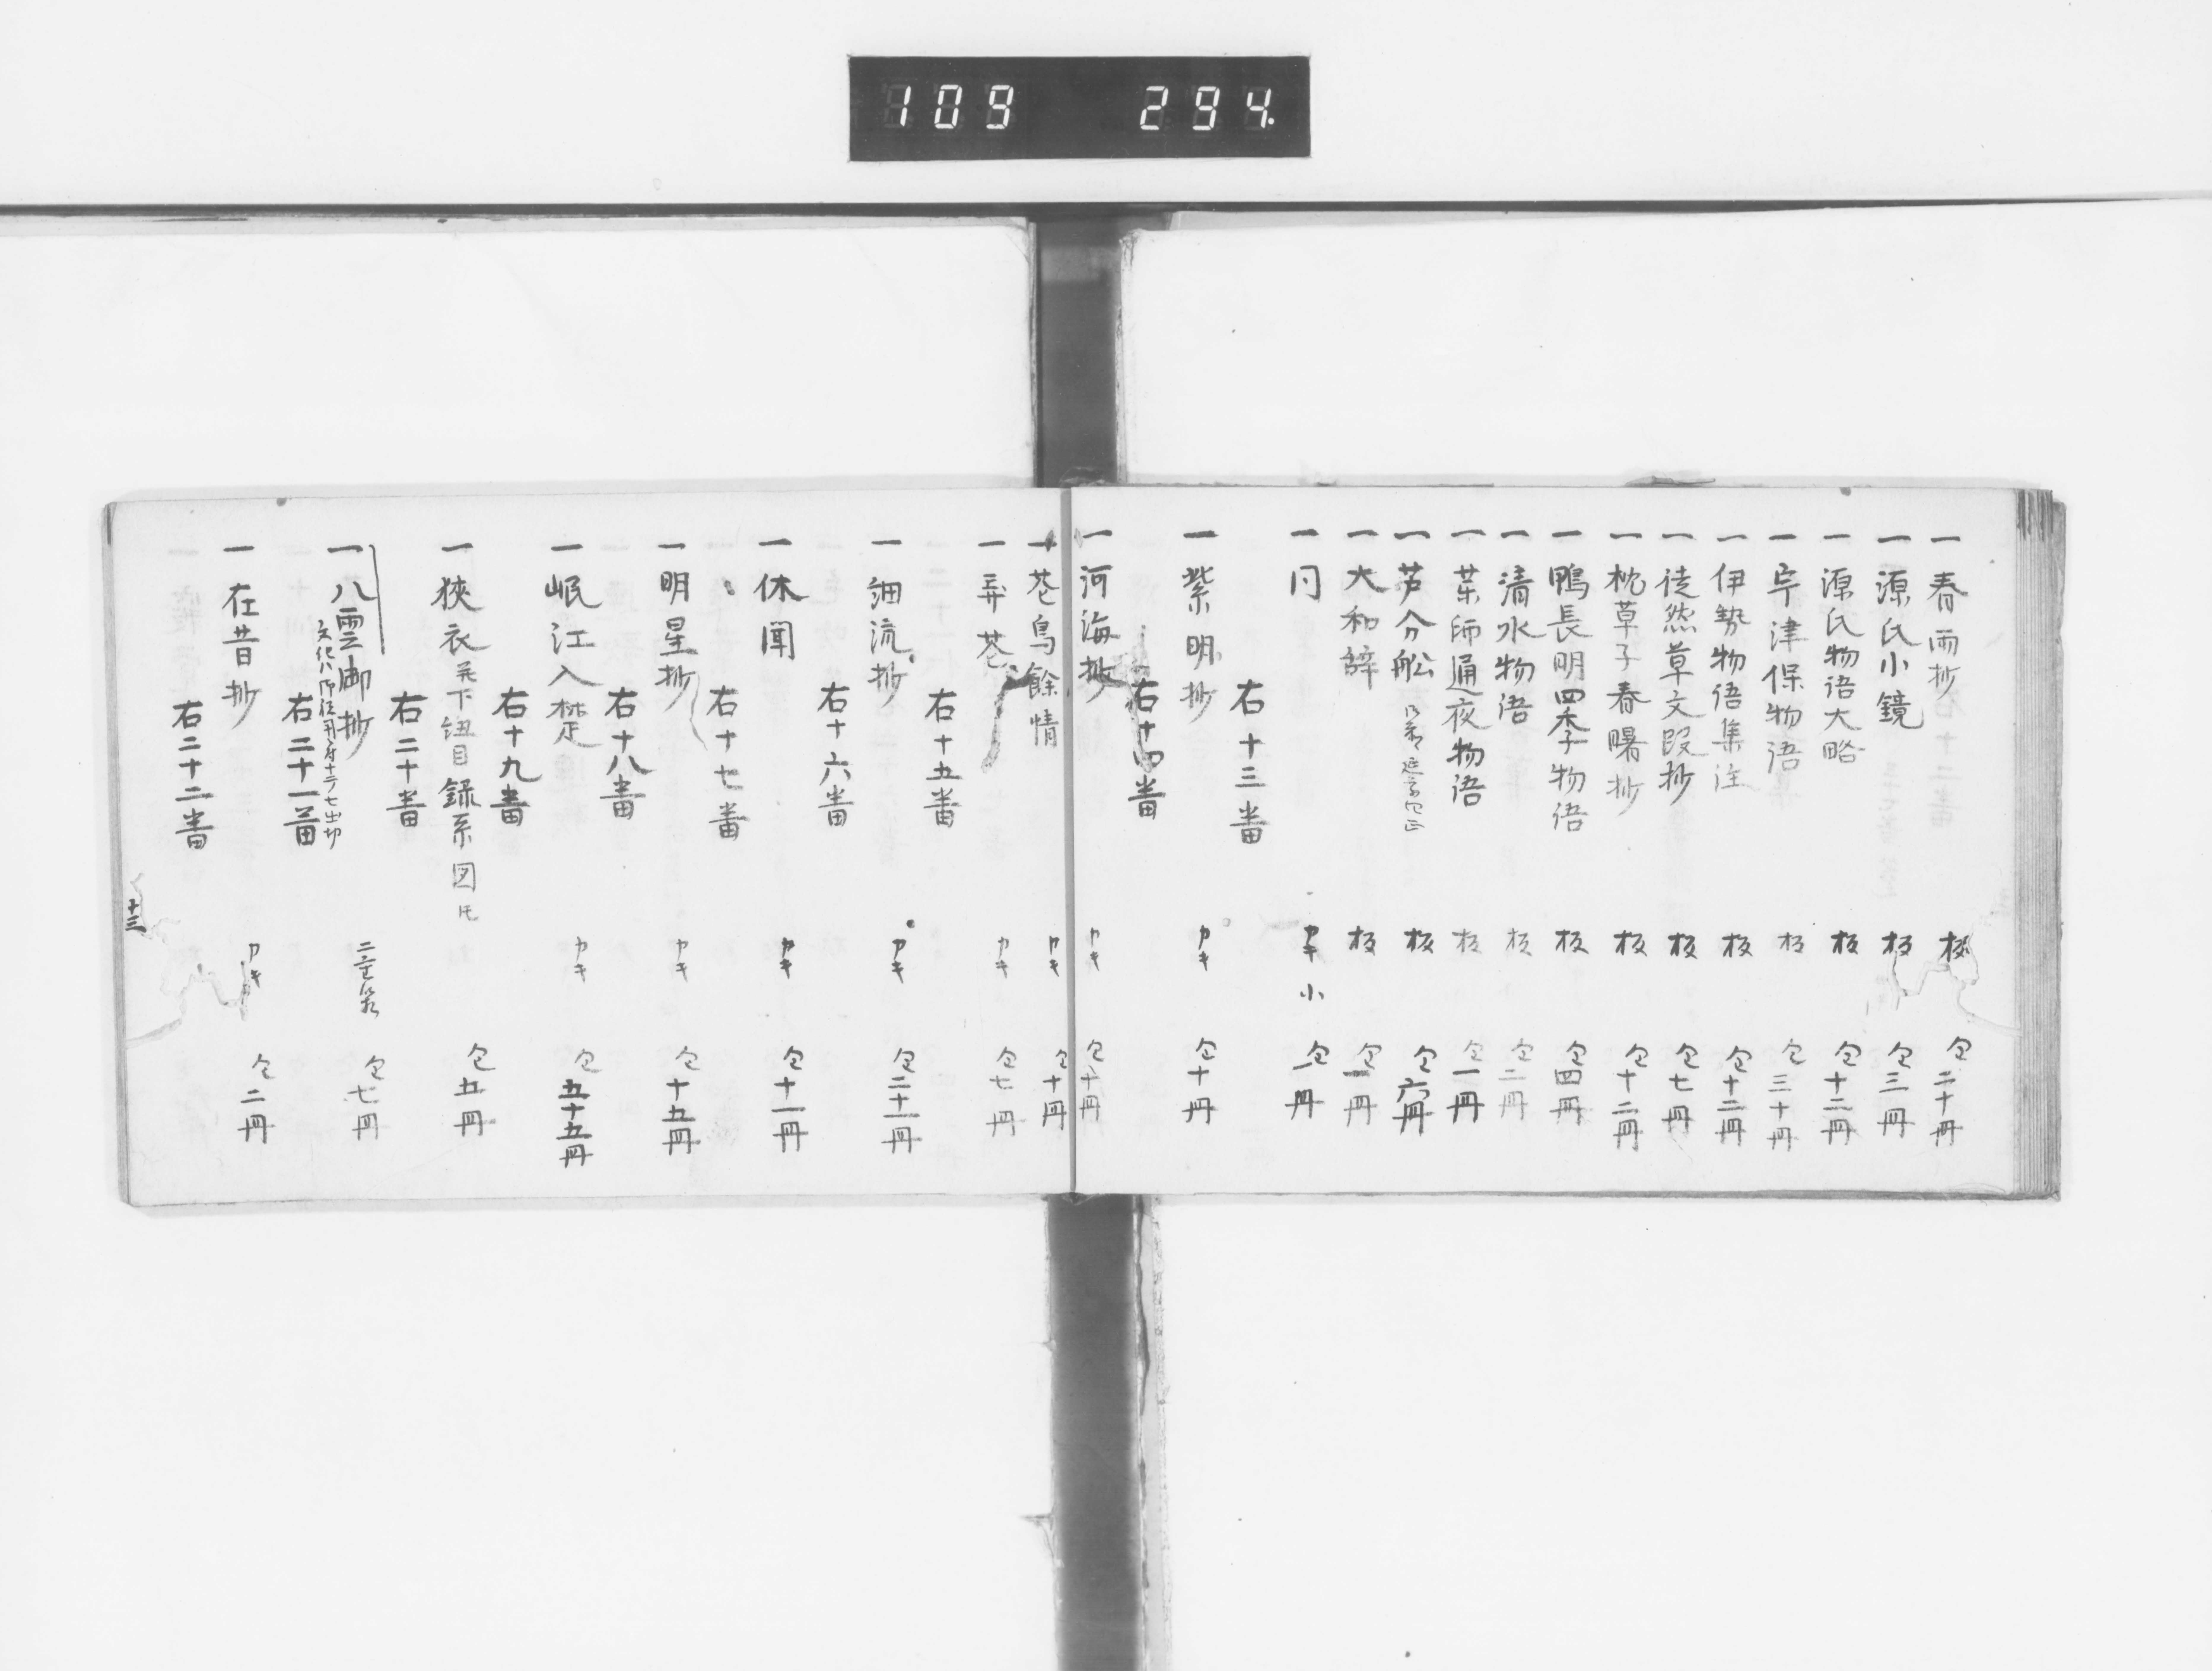 109 294
一 春雨抄 板 仝二十冊
一 源氏小鏡 板 仝三冊
一 源氏物语大略 板 仝十二冊
一 宇津保物语 板 仝三十冊
一 伊勢物语集注 板 仝十二冊
一 徒然草文段抄 板 仝七冊
一 枕草子春曙抄 板 仝十二冊
一 鴨長明四季物语 板 仝四冊
一 清水物语 板 仝二冊
一 薬师通夜物语 板 仝一冊
一 芦分船 板 仝六冊
一 大和辞 板 仝一冊
一 同 カキ 小 仝一冊
右十三番
一 紫明抄 カキ 仝十冊
右十四番
一 河海抄 カキ 仝十冊
一 花鳥餘情 カキ 仝十冊
一 弄花 カキ 仝七冊
右十五番
一 細流抄 カキ 仝二十一冊
右十六番
一 休聞 カキ 仝十一冊
右十七番
一 明星抄 カキ 仝十五冊
右十八番
一 岷江入楚 カキ 仝五十五冊
右十九番
一 狭衣 并下紐目録系図 仝五冊
右二十番
一 八雲御抄 仝七冊
右二十一番
一 在昔抄 カキ 仝二冊
右二十二番
十三